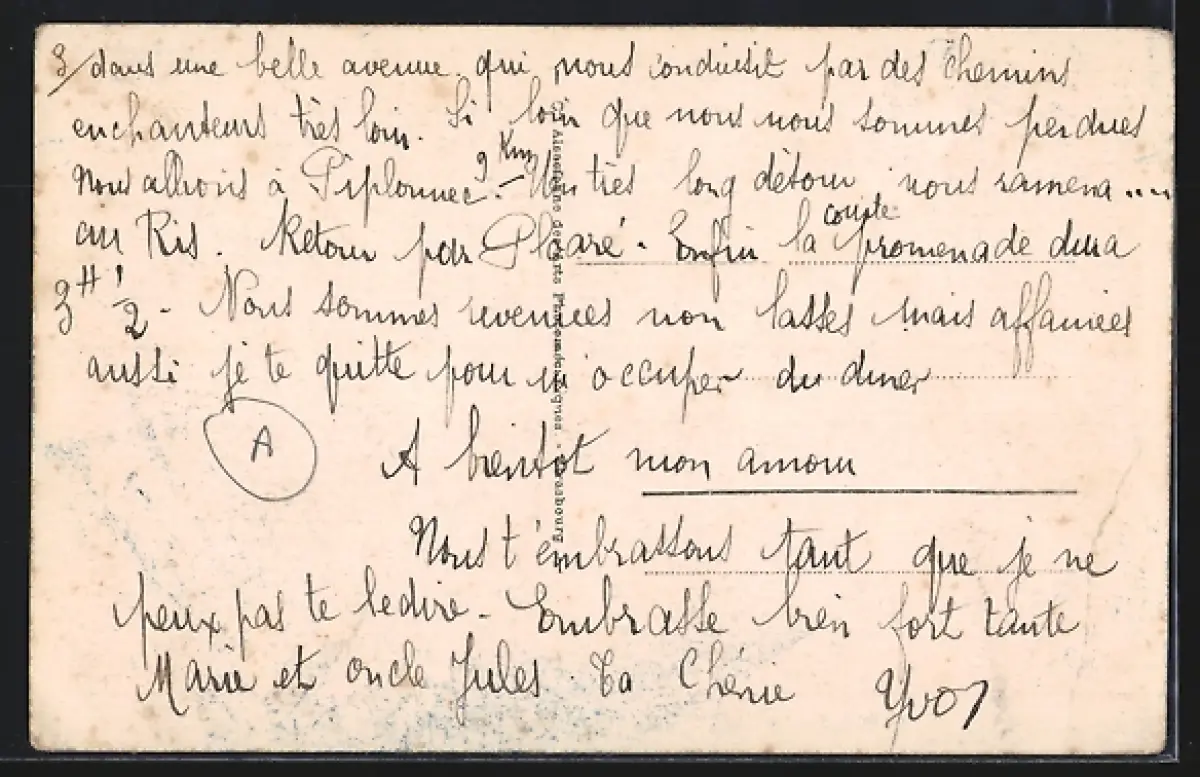 3/ dans une belle avenue qui nous conduisit par des chemins
enchanteurs très loin. Si loin que nous nous sommes perdues
9 Km
Nous allions à Piplonnec - Un très long détour nous ramena ....
au Ris. Retour par Ploaré. Enfin la courte promenade dura
3H 1/2 - Nous sommes revenues non lasses mais affamées
aussi je te quitte pour m'occuper du diner
A
A bientot mon amour
Nous t'embrassons tant que je ne
peux pas te le dire - Embrasse bien fort tante
Marie et oncle Jules. Ta Chérie Yvo
Alsacienne des Arts Strasbourg